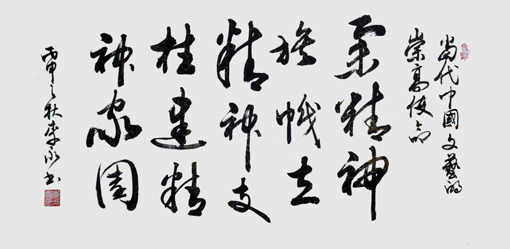 当代中國文藝的
崇高使命
票精神
旅幟立
精神支
柱建精
神家園
丙申之秋李永书